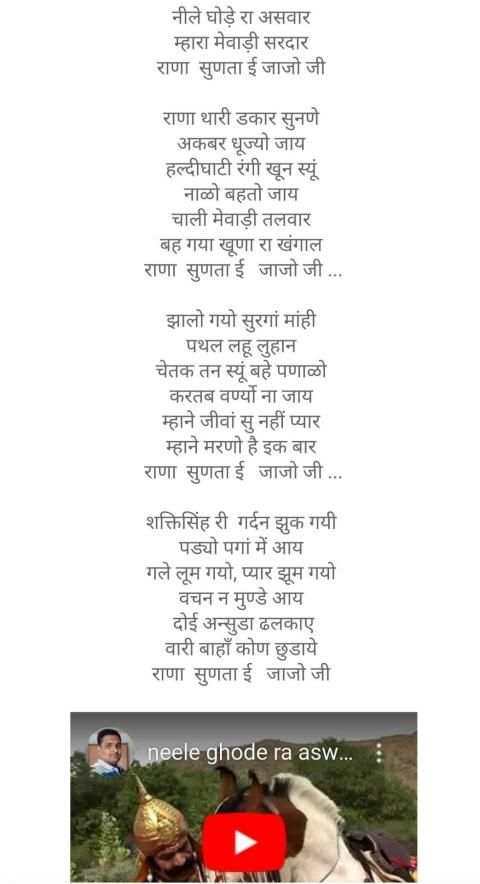 नीले घोड़े रा असवार
म्हारा मेवाड़ी सरदार
राणा सुणता ई जाजो जी
राणा थारी डकार सुनणे
अकबर धूज्यो जाय
हल्दीघाटी रंगी खून स्यूं
नाळो बहतो जाय
चाली मेवाड़ी तलवार
बह गया खूणा रा खंगाल
राणा सुणता ई जाजो जी ...
झालो गयो सुरगां मांही
पथल लहू लुहान
चेतक तन स्यूं बहे पणाळो
करतब वर्ण्यो ना जाय
म्हाने जीवां सु नहीं प्यार
म्हाने मरणो है इक बार
राणा सुणता ई जाजो जी ...
शक्तिसिंह री गर्दन झुक गयी
पड्यो पगां में आय
गले लूम गयो, प्यार झूम गयो
वचन न मुण्डे आय
दोई अन्सुडा ढलकाए
वारी बाहाँ कोण छुडाये
राणा सुणता ई जाजो जी
neele ghode ra asw...